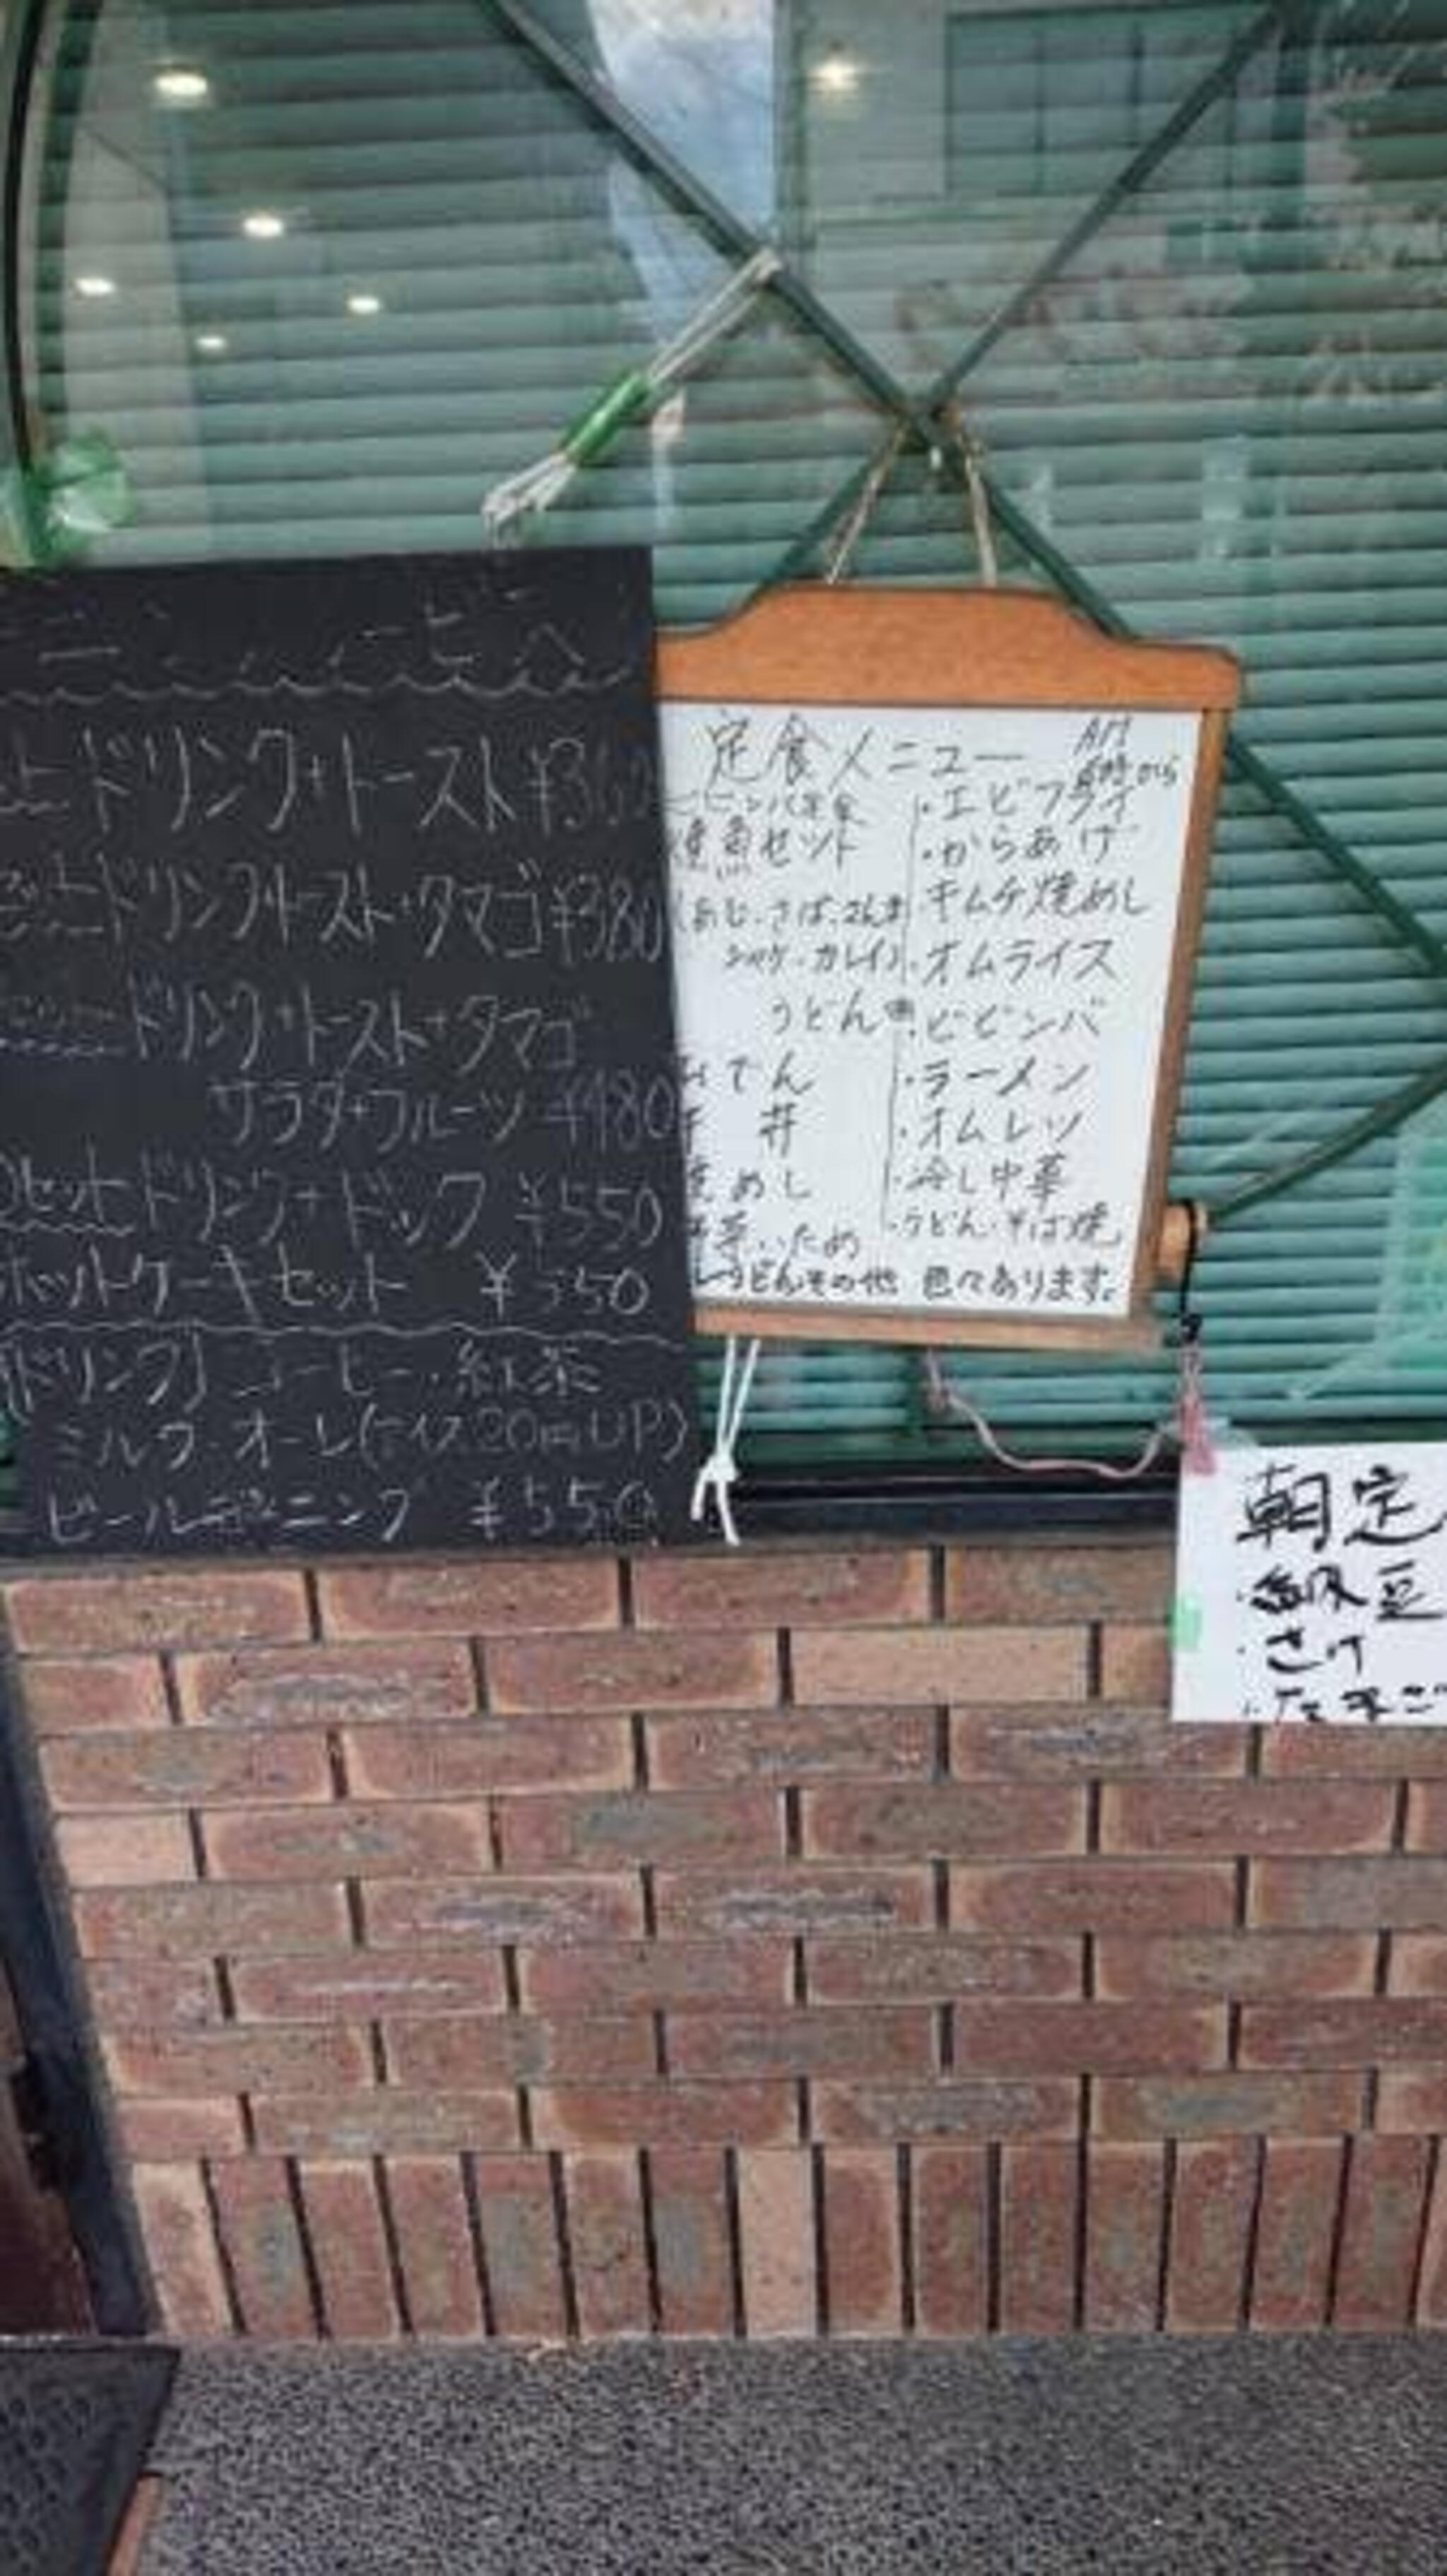 ドリンク+トースト ¥3
ドリンク+トースト+タマゴ ¥380
ドリンク+トースト+タマゴ
サラダ+フルーツ ¥480
セット ドリンク+ドック ¥550
ホットケーキセット ¥550
[ドリンク] コーヒー・紅茶
ミルク・オーレ(アイス20円UP)
ビールモーニング ¥550
定食メニュー AM
時から
焼魚セット
あじ・さば・さんま
シャケ・カレイ
うどん
おでん
丼
焼めし
野菜いため
・エビフライ
・からあげ
キムチ焼めし
・オムライス
・ビビンバ
・ラーメン
・オムレツ
・冷し中華
・うどん・そば焼
うどんその他 色々あります。
朝定
・納豆
・さけ
・たまご